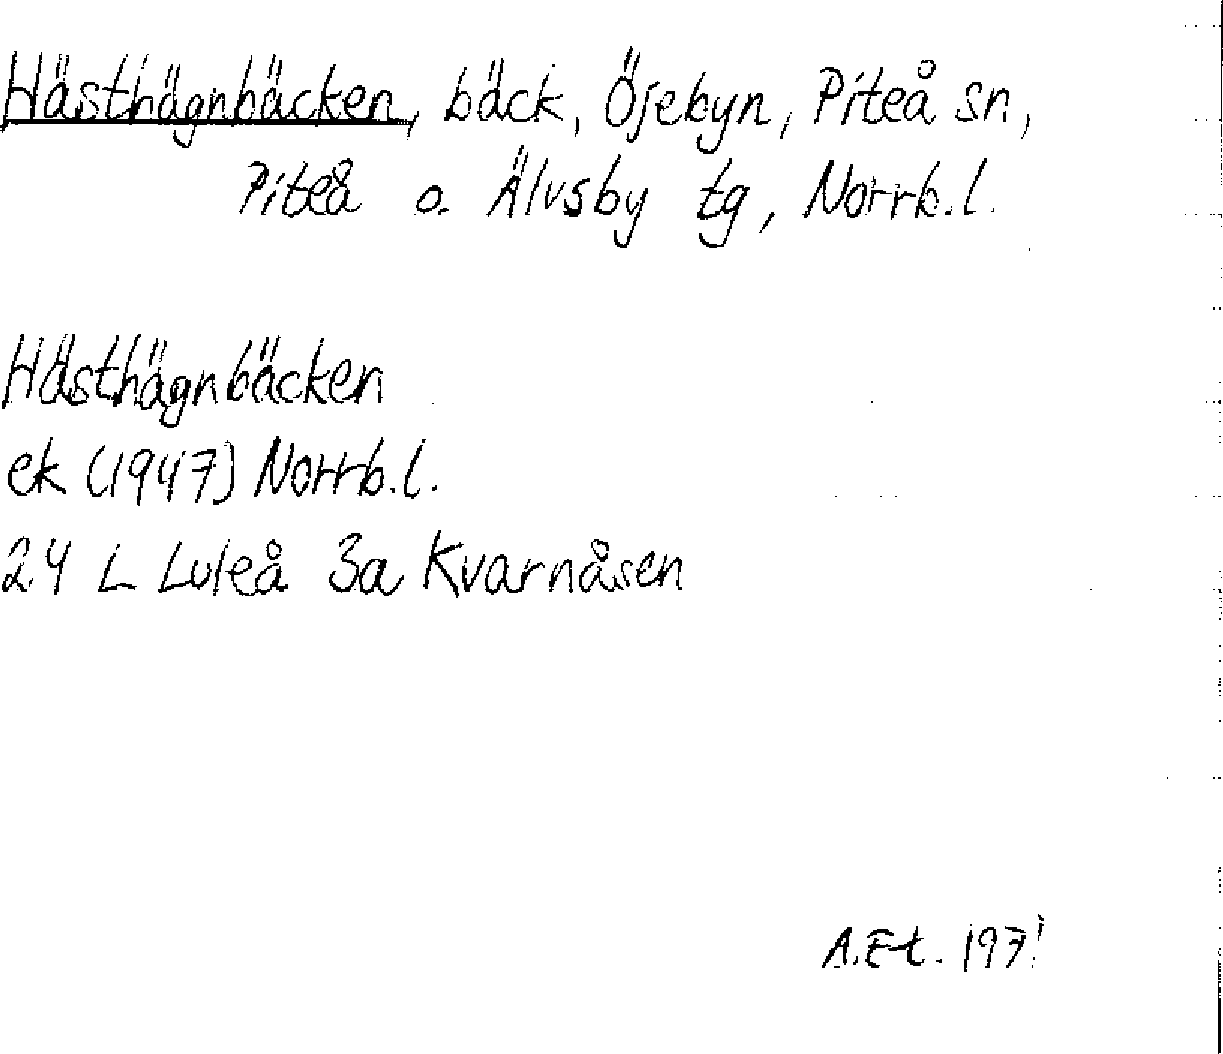 Hästhägnbäcken, bäck, Öjebyn, Piteå sn,
Piteå o. Älvsby tg, Norrb.l.
Hästhägnbäcken
ek (1947) Norrb.l.
24 L Luleå 3a Kvarnåsen
A.Et. 1971